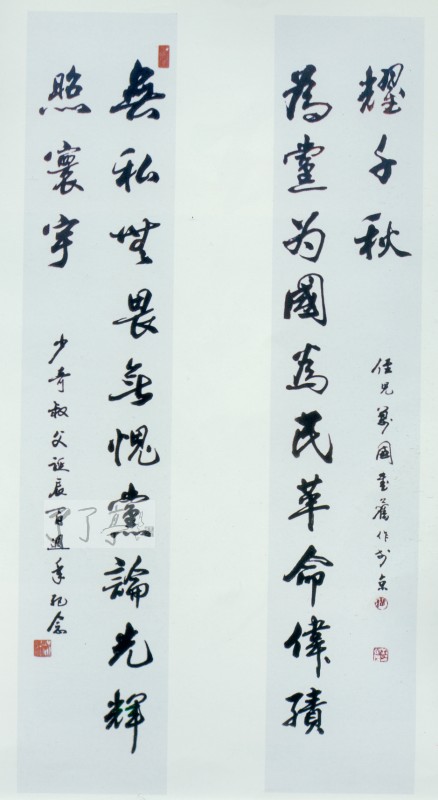 無私無畏無愧黨論光輝
照寰宇
少奇叔父誕辰百週年紀念
為黨为國為民革命偉績
耀千秋
侄兒萬國書舊作於京